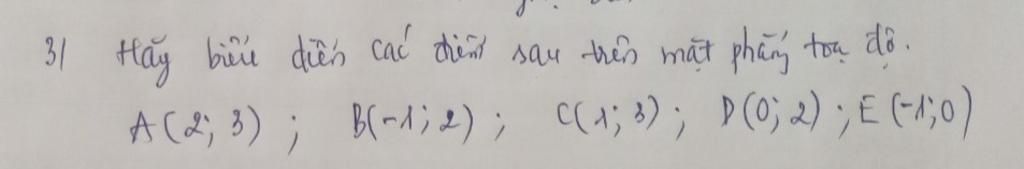 3/ Hãy biểu diễn các điểm sau trên mặt phẳng toạ độ.
A(2; 3) ; B(-1; 2) ; C(1; 3) ; D(0; 2) ; E(-1; 0)